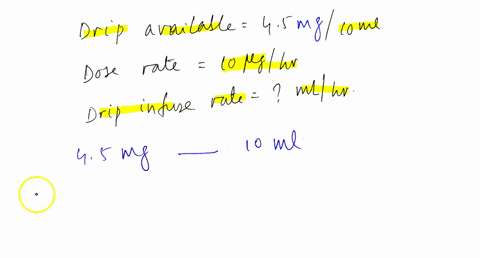 Drip available = 4.5 mg/10 ml
Dose rate = 10 μg/hr
Drip infuse rate = ? ml/hr.
4.5 mg — 10 ml